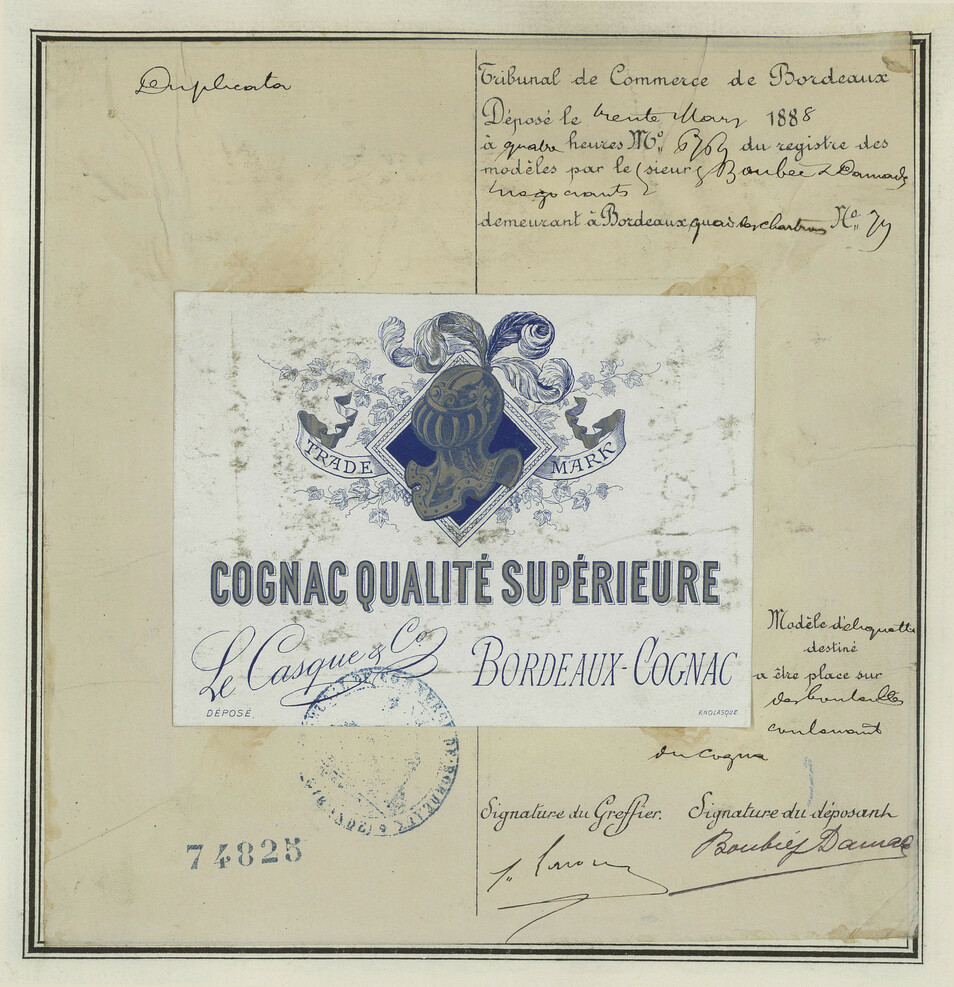 Duplicata
Tribunal de Commerce de Bordeaux
Déposé le trente Mars 1888
à quatre heures Nº du registre des
modèles par le sieurs
negociants
demeurant à Bordeaux quai des chartrons Nº 79
TRADE MARK
COGNAC QUALITÉ SUPÉRIEURE
Le Casque & Co
BORDEAUX-COGNAC
DÉPOSÉ.
Modèle d'etiquette
destiné
a être place sur
des bouteilles
contenant
du Cogna
DE COMMERCE DE BORDEAUX
Signature du Greffier.
Signature du déposant
74825